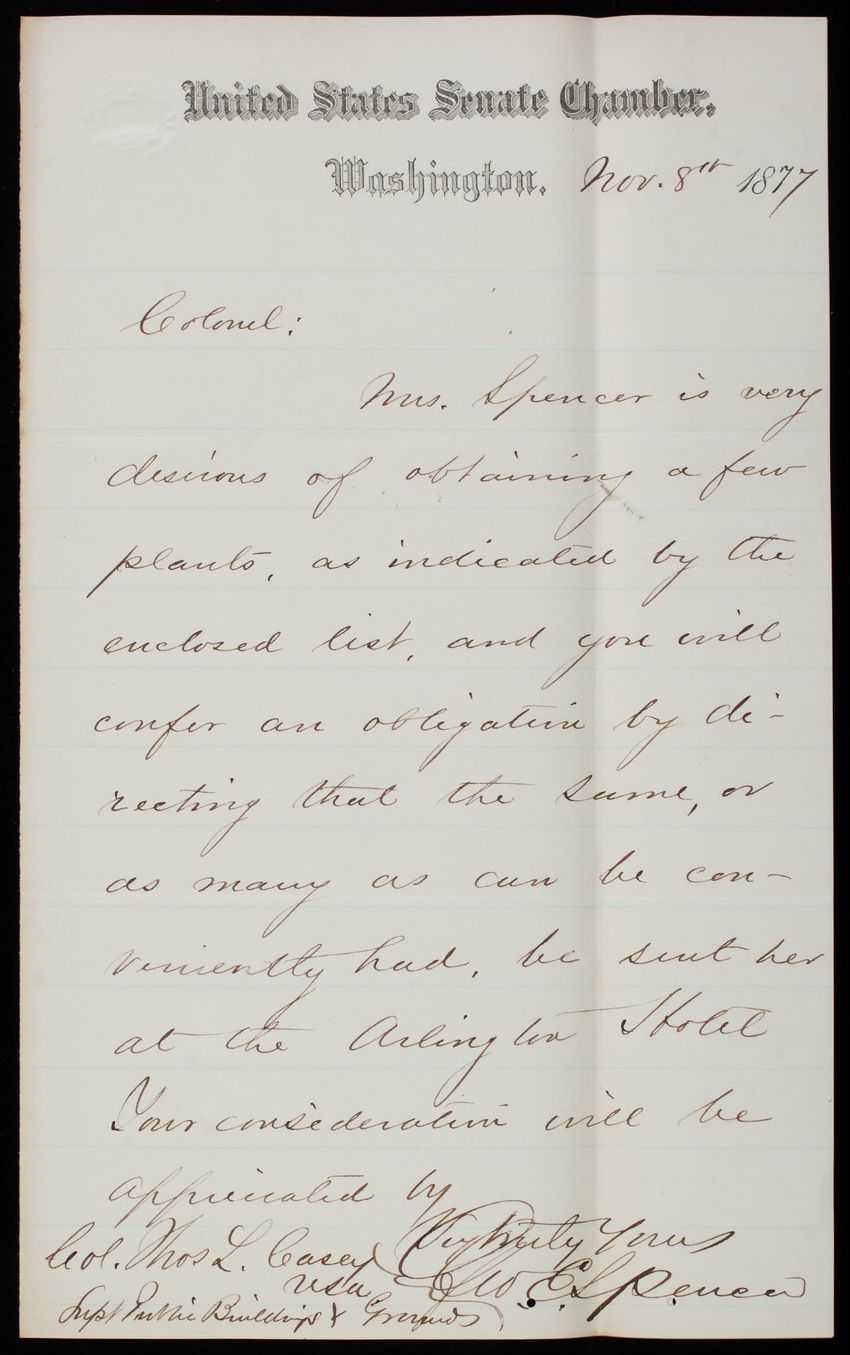 United States Senate Chamber,
Washington. Nov. 8th 1877
Colonel:
Mrs. Spencer is very
desirous of obtaining a few
plants, as indicated by the
enclosed list, and you will
confer an obligation by di-
recting that the same, or
as many as can be con-
veniently had, be sent her
at the Arlington Hotel
Your consideration will be
appreciated by
Very truly Yours
Geo. E. Spencer
Col. Thos L. Casey
USA
Supt Public Buildings & Grounds